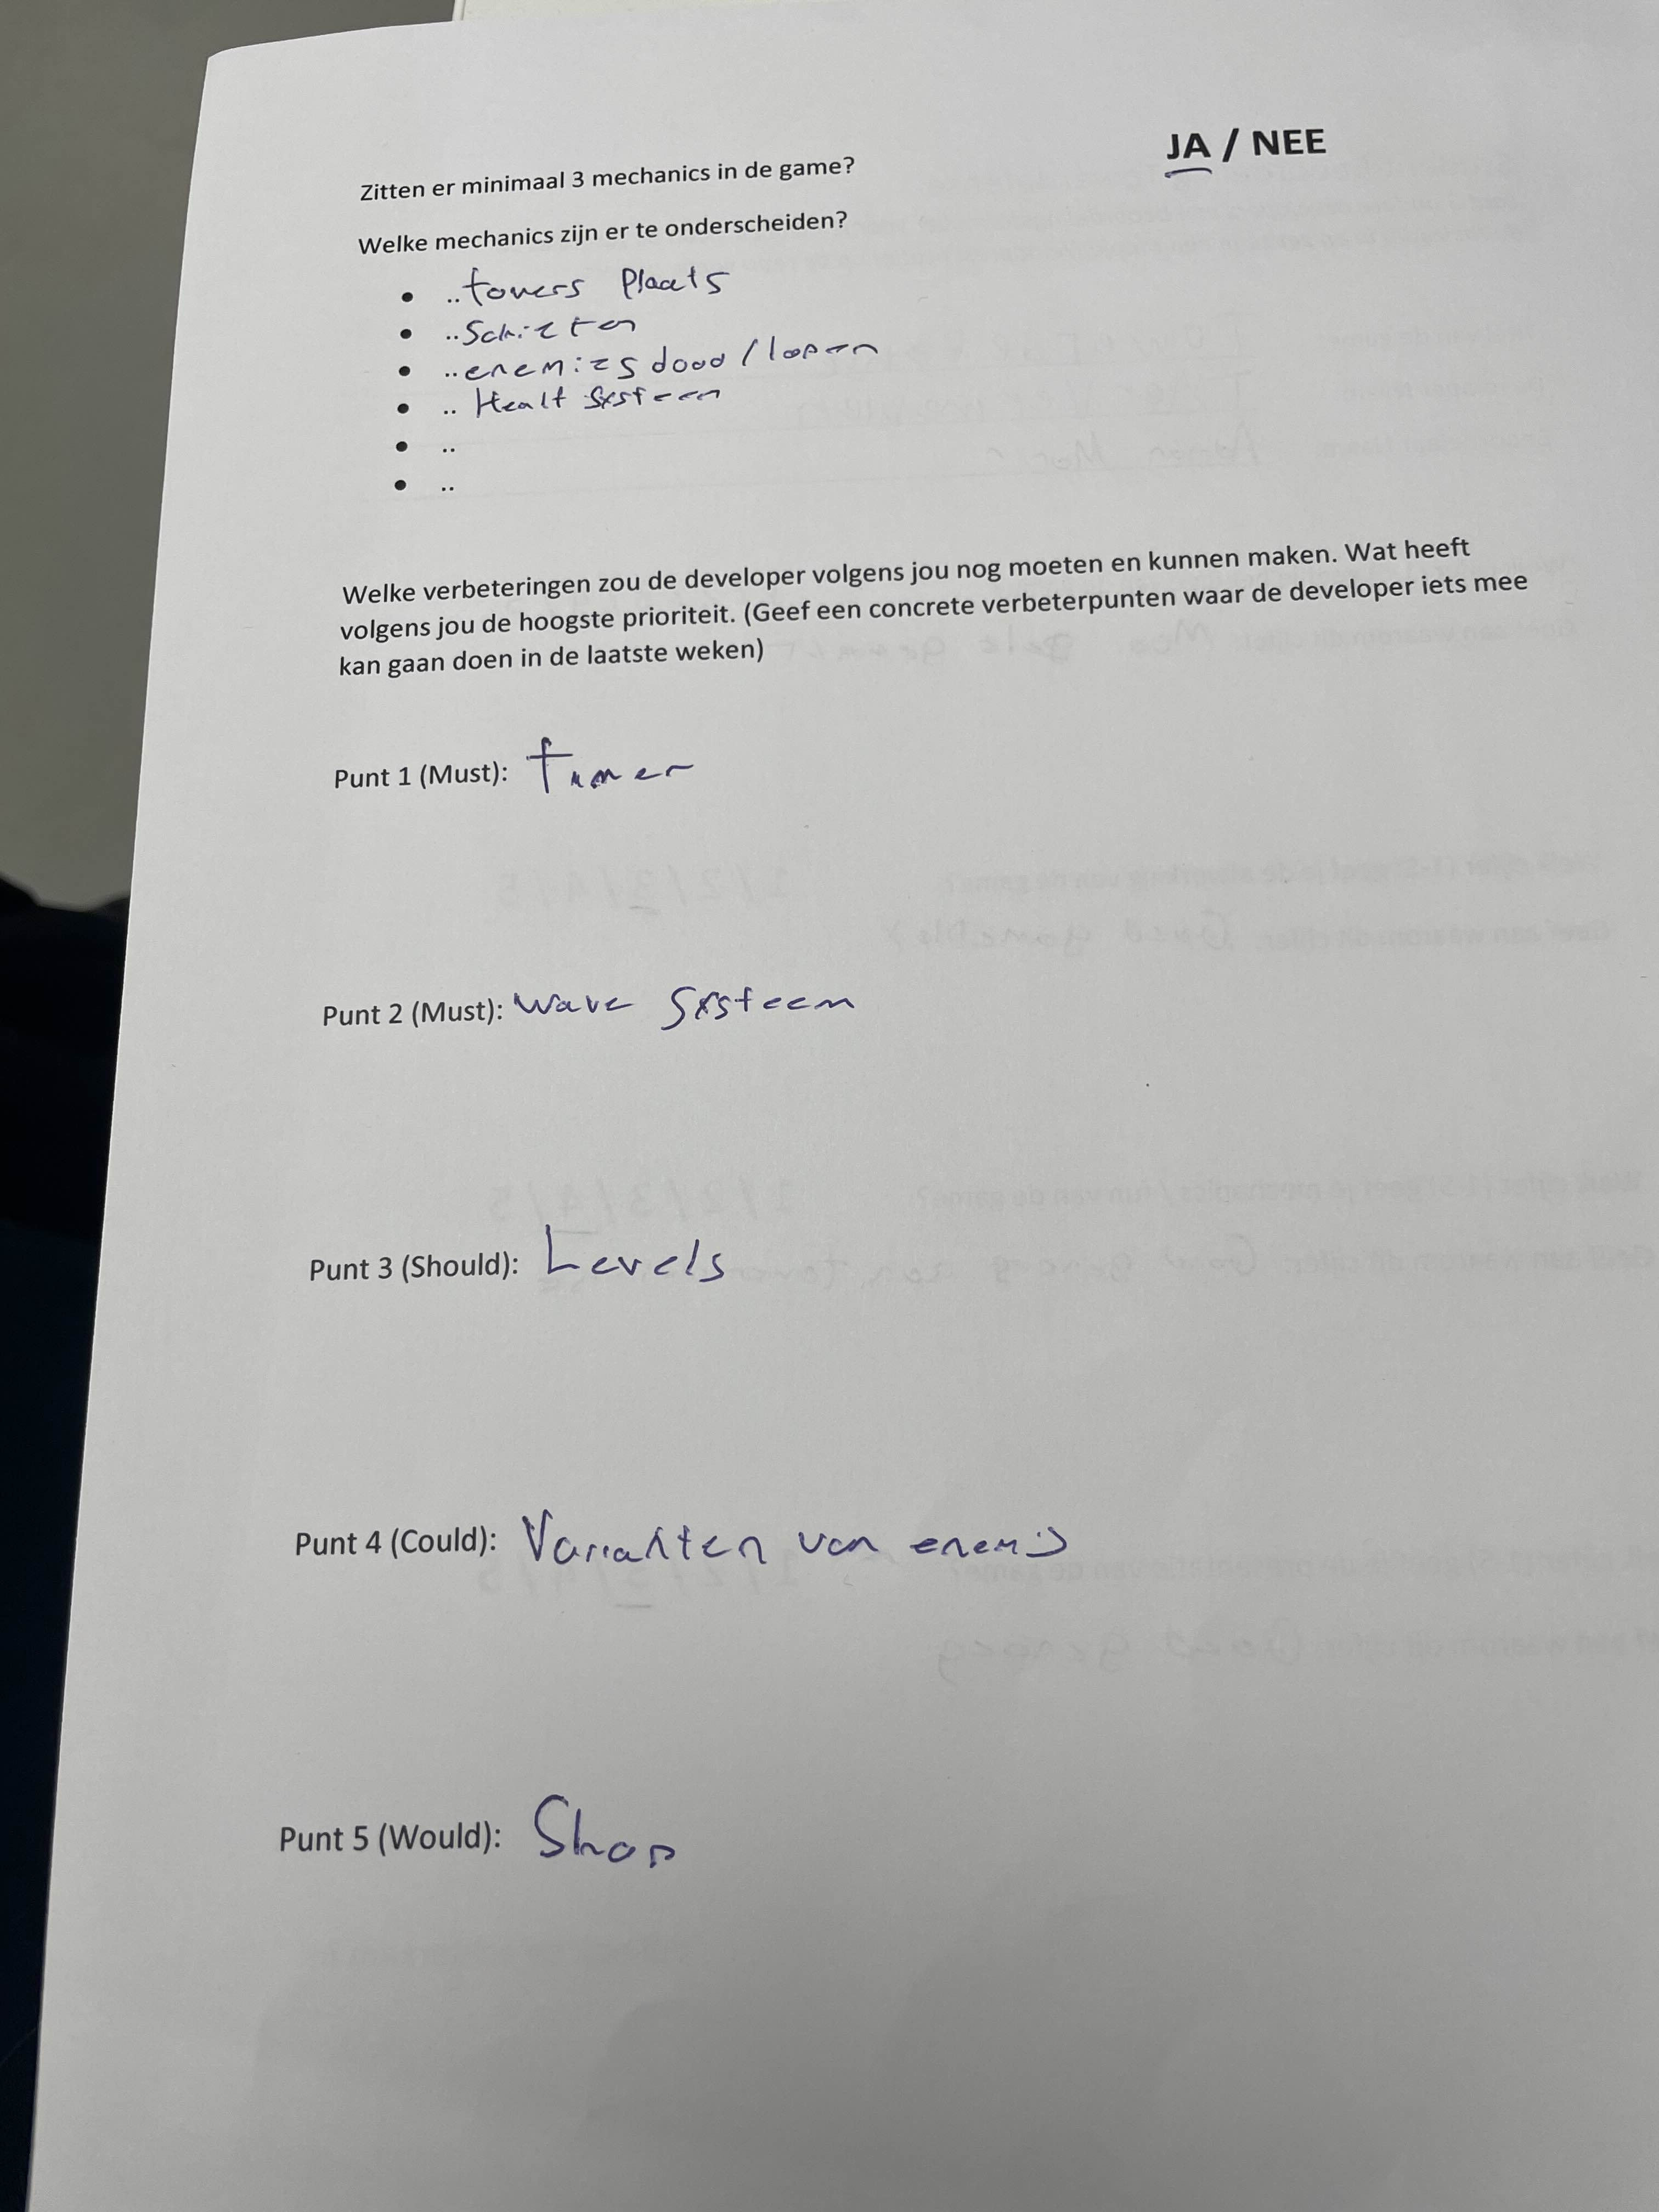 JA / NEE
Zitten er minimaal 3 mechanics in de game?
Welke mechanics zijn er te onderscheiden?
• ..towers Plaats
• ..Schieten
• ..enemies dood / lopen
• .. Healt Systeem
• ..
• ..
Welke verbeteringen zou de developer volgens jou nog moeten en kunnen maken. Wat heeft
volgens jou de hoogste prioriteit. (Geef een concrete verbeterpunten waar de developer iets mee
kan gaan doen in de laatste weken)
Punt 1 (Must): timer
Punt 2 (Must): wave Systeem
Punt 3 (Should): Levels
Punt 4 (Could): Varianten van
Punt 5 (Would): Shop